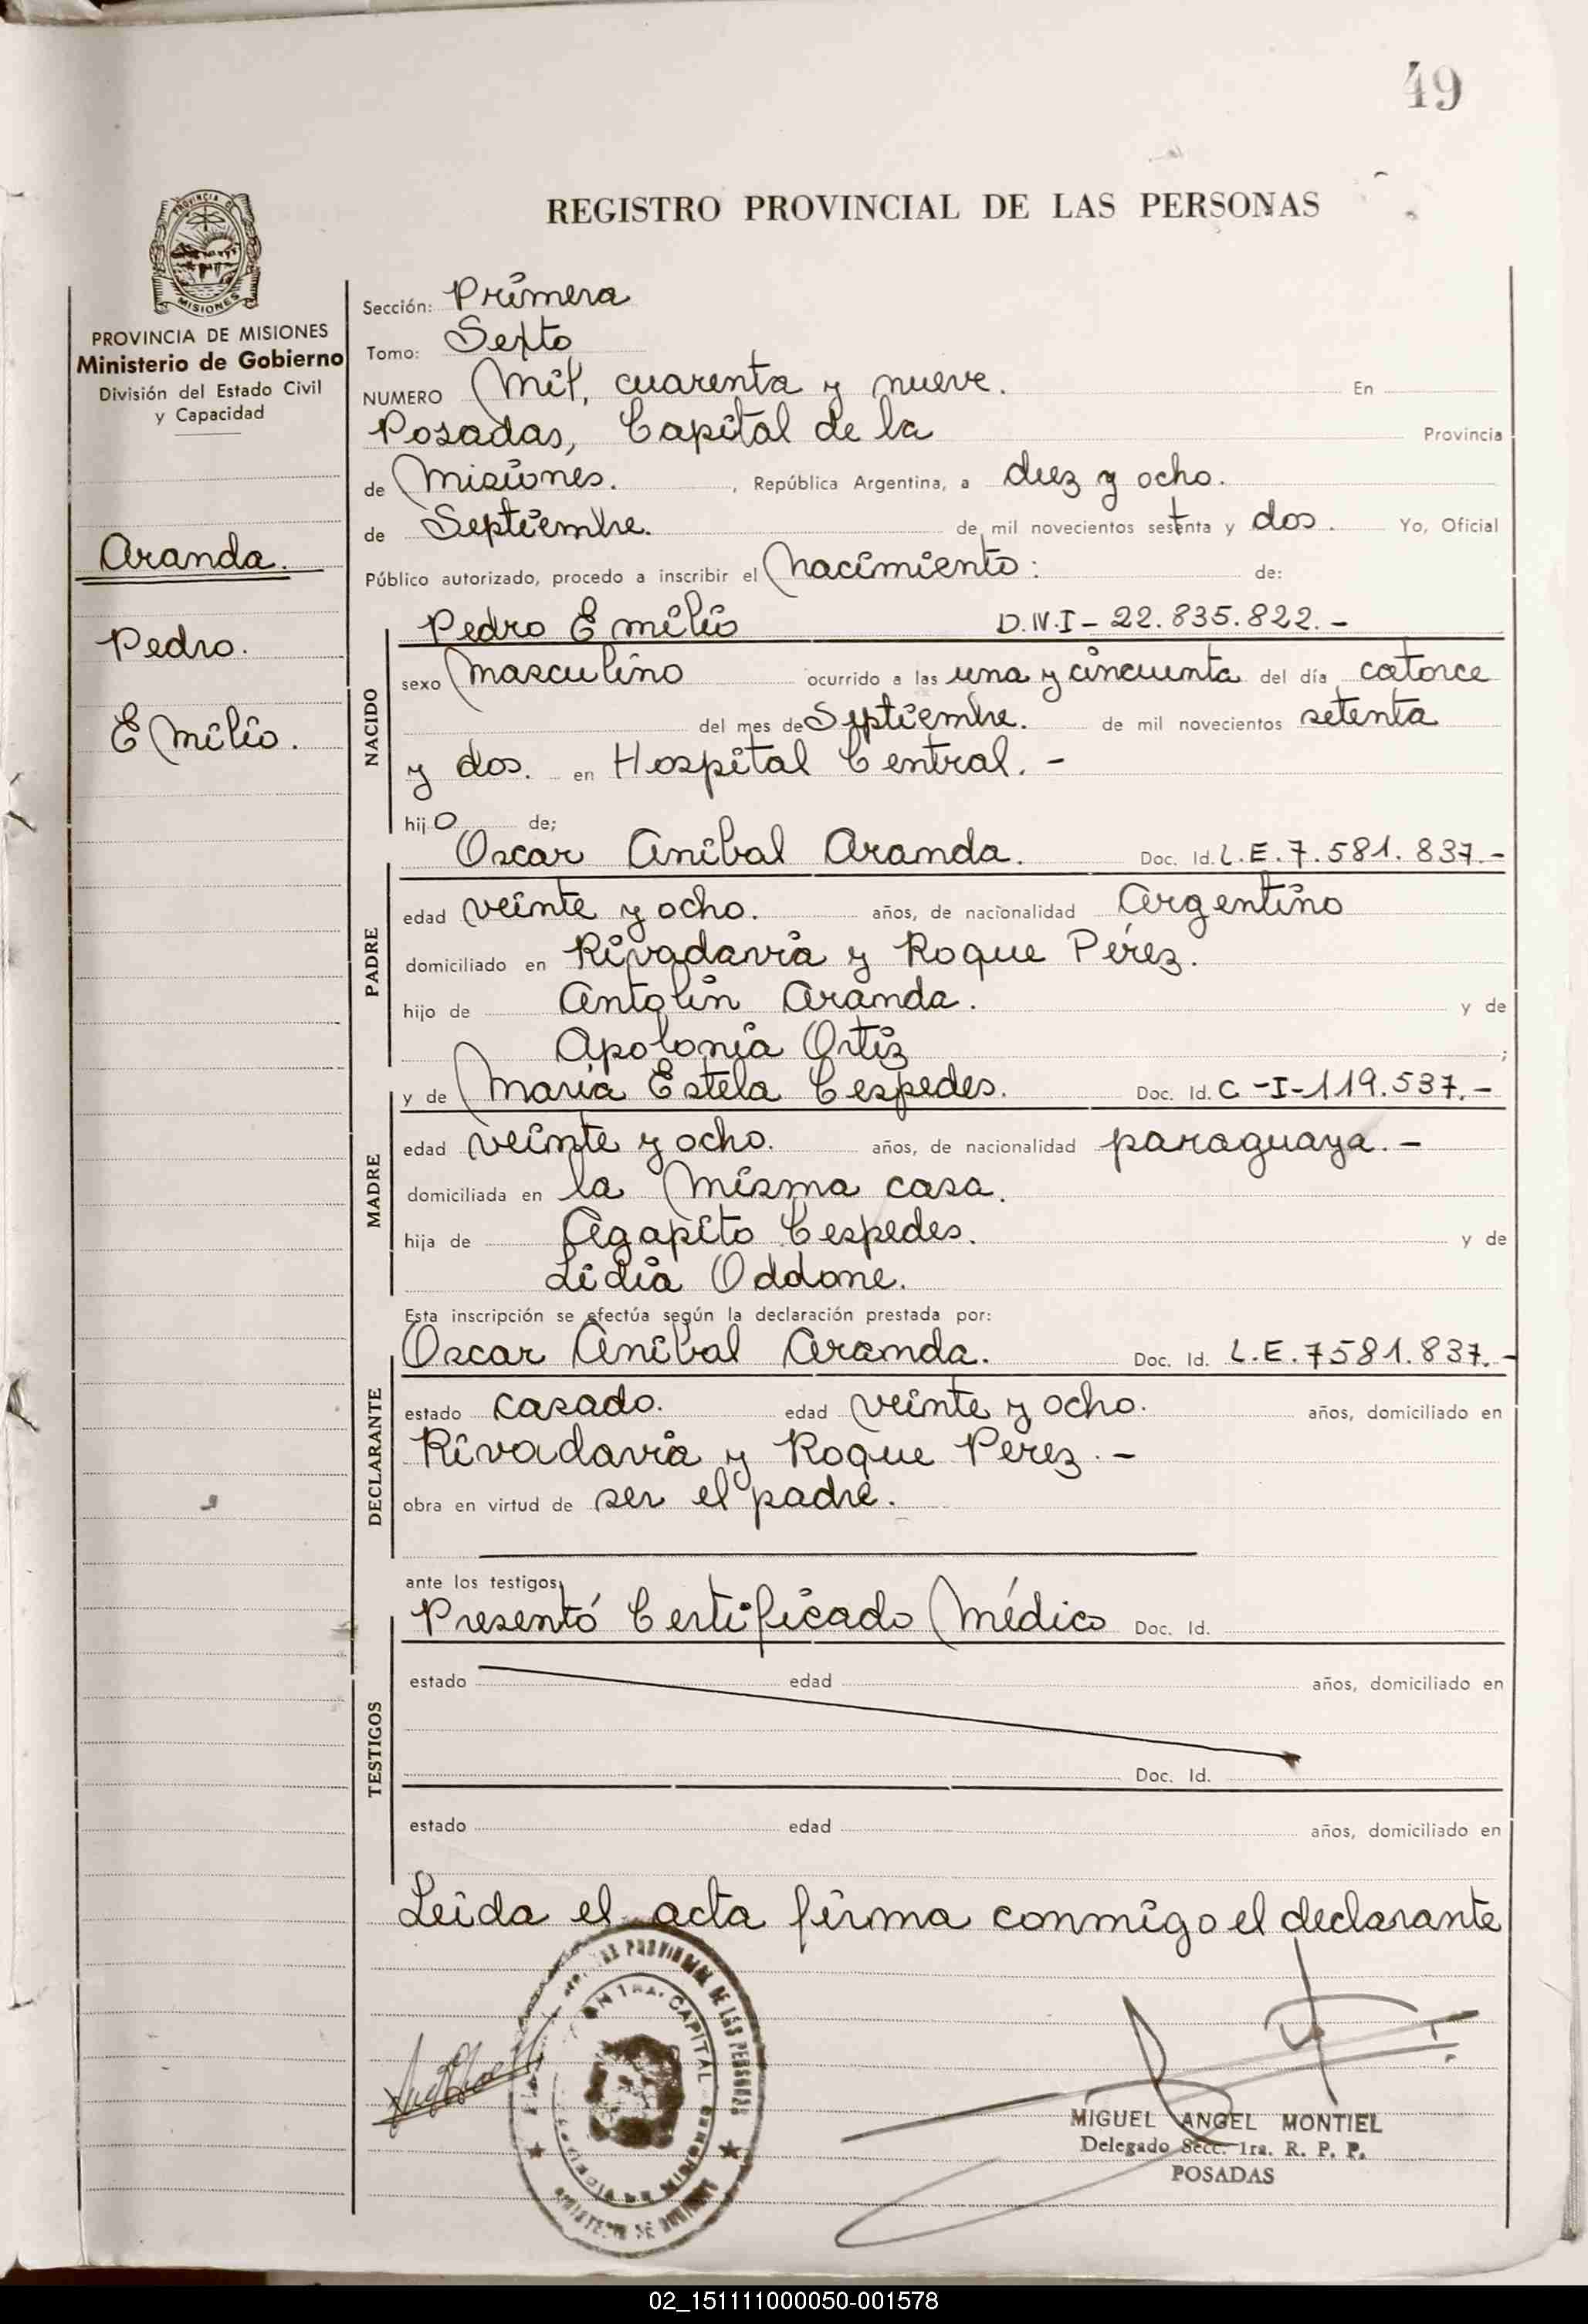 49
REGISTRO PROVINCIAL DE LAS PERSONAS
PROVINCIA DE
MISIONES
PROVINCIA DE MISIONES
Ministerio de Gobierno
División del Estado Civil
y Capacidad
Aranda.
Pedro.
Emilio.
Sección: Primera
Tomo: Sexto
NUMERO Mil, cuarenta y nueve. En
Posadas, Capital de la Provincia
de Misiones. , República Argentina, a diez y ocho.
de Septiembre. de mil novecientos setenta y dos. Yo, Oficial
Público autorizado, procedo a inscribir el Nacimiento: de:
NACIDO
Pedro Emilio D.N.I - 22.835.822.-
sexo Masculino ocurrido a las una y cincuenta del día catorce
del mes de Septiembre. de mil novecientos setenta
y dos. en Hospital Central. -
hijo de;
PADRE
Oscar Anibal Aranda. Doc. Id. L.E. 7.581.837.-
edad veinte y ocho. años, de nacionalidad Argentino
domiciliado en Rivadavia y Roque Pérez.
hijo de Antolin Aranda. y de
Apolonia Ortiz ;
MADRE
y de Maria Estela Cespedes. Doc. Id. C-I-119.537.-
edad veinte y ocho. años, de nacionalidad paraguaya. -
domiciliada en la misma casa.
hija de Agapito Cespedes. y de
Lidia Oddone.
Esta inscripción se efectúa según la declaración prestada por:
DECLARANTE
Oscar Anibal Aranda. Doc. Id. L.E. 7581.837.-
estado casado. edad veinte y ocho. años, domiciliado en
Rivadavia y Roque Perez. -
obra en virtud de ser el padre.
ante los testigos,
TESTIGOS
Presentó Certificado Médico Doc. Id.
estado edad años, domiciliado en
Doc. Id.
estado edad años, domiciliado en
Leida el acta firma conmigo el declarante
PROVINCIAL DE LAS PERSONAS
1RA. CAPITAL
MIGUEL ANGEL MONTIEL
Delegado Secc. 1ra. R. P. P.
POSADAS
02_151111000050-001578